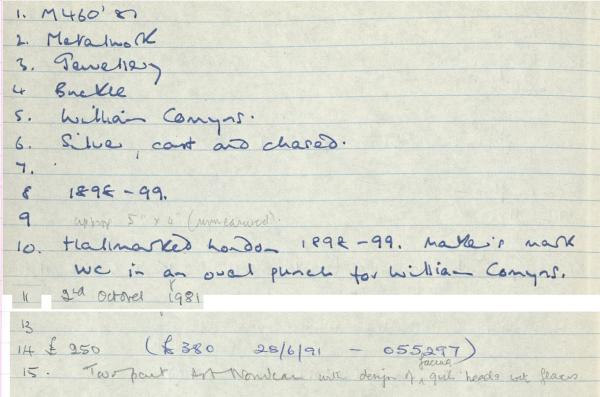 1. M460'81
2. Metalwork
3. Jewellery
4 Buckle
5. William Comyns.
6. Silver, cast and chased.
7.
8 1898-99.
9 approx 5" x 4" (unmeasured).
10. Hallmarked London 1898-99. Maker's mark
WC in an oval punch for William Comyns.
11 2nd October 1981
13
14 £ 250 (£380 28/6/91 - 055297)
15. Two part Art Nouveau with design of facing girls heads with flowers